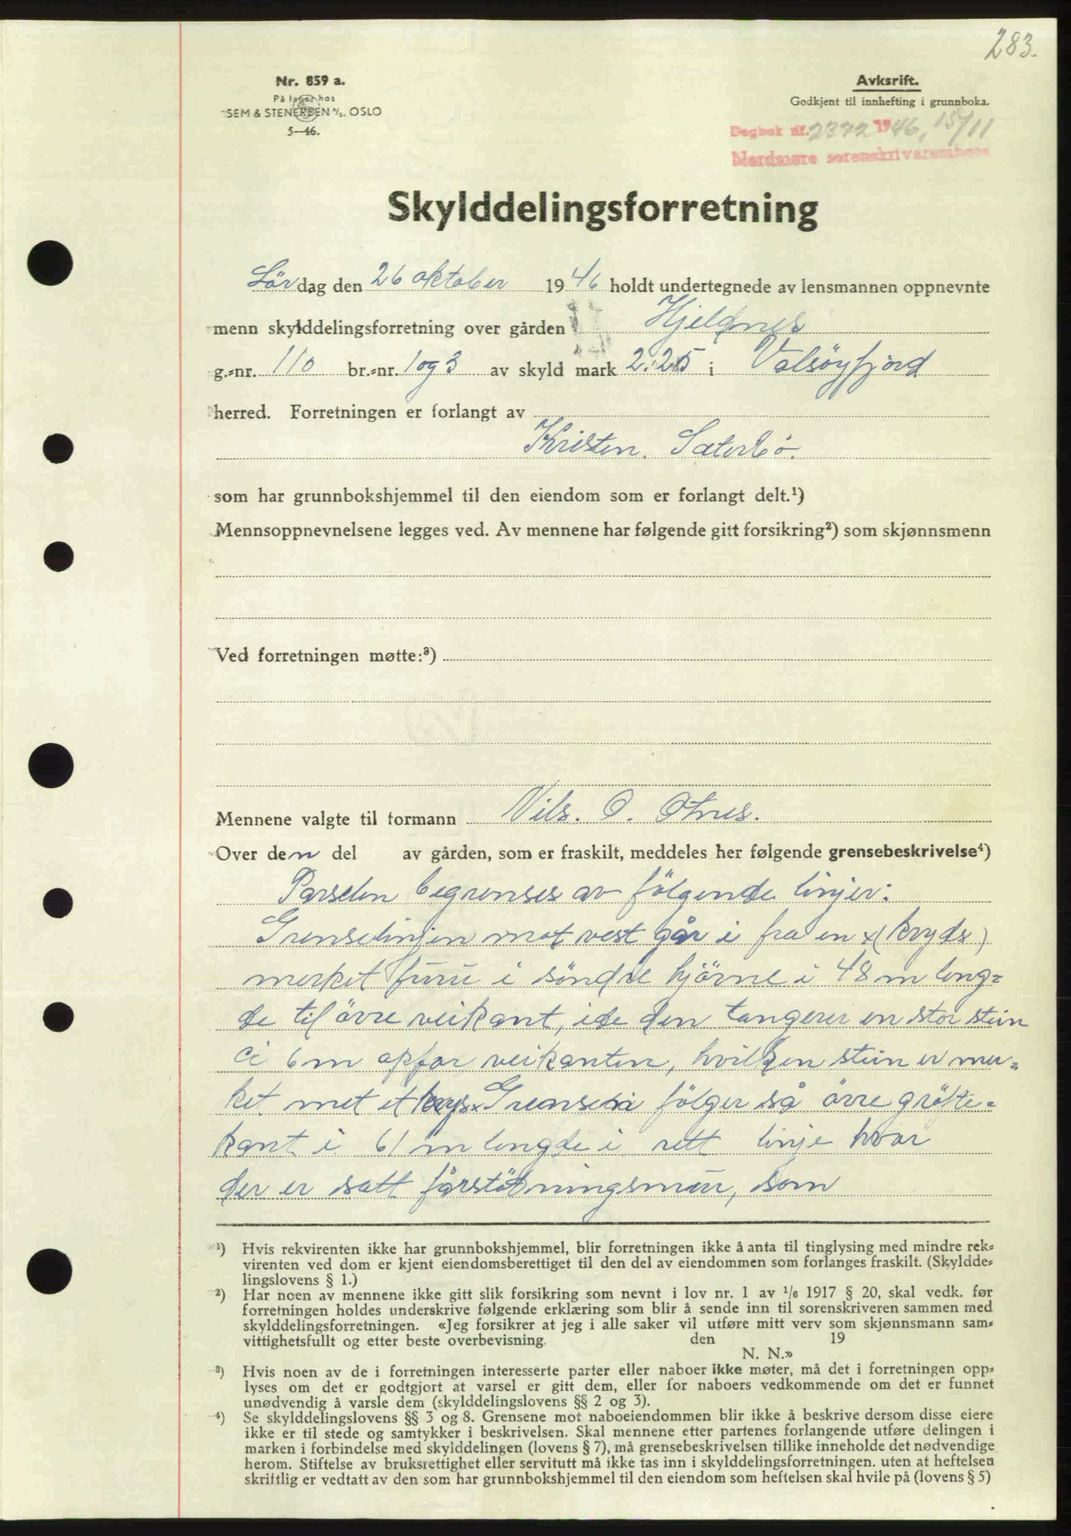 283.
Nr. 859 a.
På lager hos
SEM & STENERSEN A/S. OSLO
5—46.
Avksrift.
Godkjent til innhefting i grunnboka.
Dagbok nr. 2372 1946, 15/11
Nordmøre sorenskriverembete
Skylddelingsforretning
Lördag den 26 oktober 1946 holdt undertegnede av lensmannen oppnevnte
menn skylddelingsforretning over gården Hjelmnes
g.-nr. 110 br.-nr. 1 og 3 av skyld mark 2.25 i Valsöyfjord
herred. Forretningen er forlangt av
Kristen. Sæterbö.
som har grunnbokshjemmel til den eiendom som er forlangt delt.¹)
Mennsoppnevnelsene legges ved. Av mennene har følgende gitt forsikring²) som skjønnsmenn
Ved forretningen møtte:³)
Mennene valgte til formann Nils. O. Otnes.
Over den del av gården, som er fraskilt, meddeles her følgende grensebeskrivelse⁴)
Parselen begrenses av fölgende linjer:
Grenselinjen mot vest går i fra en x (kryds)
merket furu i söndre hjörne i 48 m leng=
de til övre veikant, ide den tangerer en stor stein
ci 6 m opfor veikanten, hvilken stein er mer=
ket met et krys x Grensen fölger så övre gröfte=
kant i 61 m lengde i rett linje hvor
der er satt forstötningsmur, som
¹) Hvis rekvirenten ikke har grunnbokshjemmel, blir forretningen ikke å anta til tinglysing med mindre rek-
virenten ved dom er kjent eiendomsberettiget til den del av eiendommen som forlanges fraskilt. (Skyldde-
lingslovens § 1.)
²) Har noen av mennene ikke gitt slik forsikring som nevnt i lov nr. 1 av ¹/₆ 1917 § 20, skal vedk. før
forretningen holdes underskrive følgende erklæring som blir å sende inn til sorenskriveren sammen med
skylddelingsforretningen. «Jeg forsikrer at jeg i alle saker vil utføre mitt verv som skjønnsmann sam-
vittighetsfullt og etter beste overbevisning. den 19
N. N.»
³) Hvis noen av de i forretningen interesserte parter eller naboer ikke møter, må det i forretningen opp-
lyses om det er godtgjort at varsel er gitt dem, eller for naboers vedkommende om det er funnet
unødvendig å varsle dem (skylddelingslovens §§ 2 og 3).
⁴) Se skylddelingslovens §§ 3 og 8. Grensene mot naboeiendommen blir ikke å beskrive dersom disse eiere
ikke er til stede og samtykker i beskrivelsen. Skal mennene etter partenes forlangende utføre delingen i
marken i forbindelse med skylddelingen (lovens § 7), må grensebeskrivelsen tillike inneholde det nødvendige
herom. Stiftelse av bruksrettighet eller servitutt må ikke tas inn i skylddelingsforretningen. uten at heftelsen
skriftlig er vedtatt av den som har grunnbokshjemmel til den eiendom som heftelsen skal hvile på (lovens § 5)